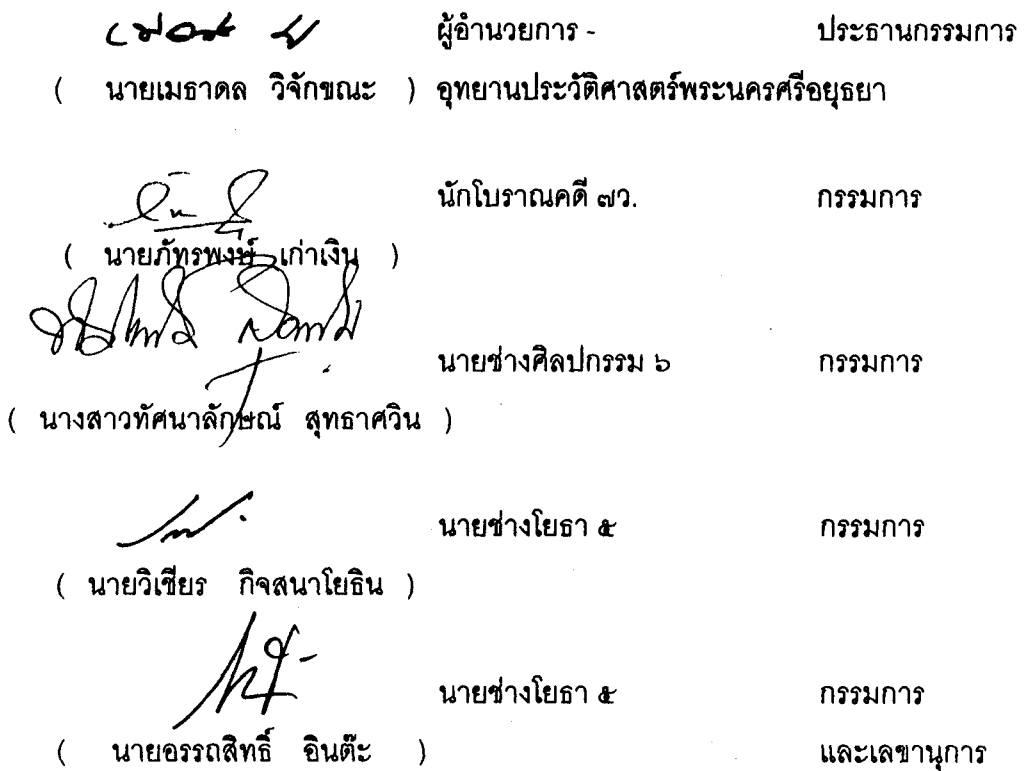 ผู้อำนวยการ - ประธานกรรมการ
( นายเมธาดล วิจักขณะ ) อุทยานประวัติศาสตร์พระนครศรีอยุธยา
นักโบราณคดี ๗ว. กรรมการ
( นายภัทรพงษ์ เก่าเงิน )
นายช่างศิลปกรรม ๖ กรรมการ
( นางสาวทัศนาลักษณ์ สุทธาศวิน )
นายช่างโยธา ๕ กรรมการ
( นายวิเชียร กิจสนาโยธิน )
นายช่างโยธา ๕ กรรมการ
( นายอรรถสิทธิ์ อินต๊ะ ) และเลขานุการ